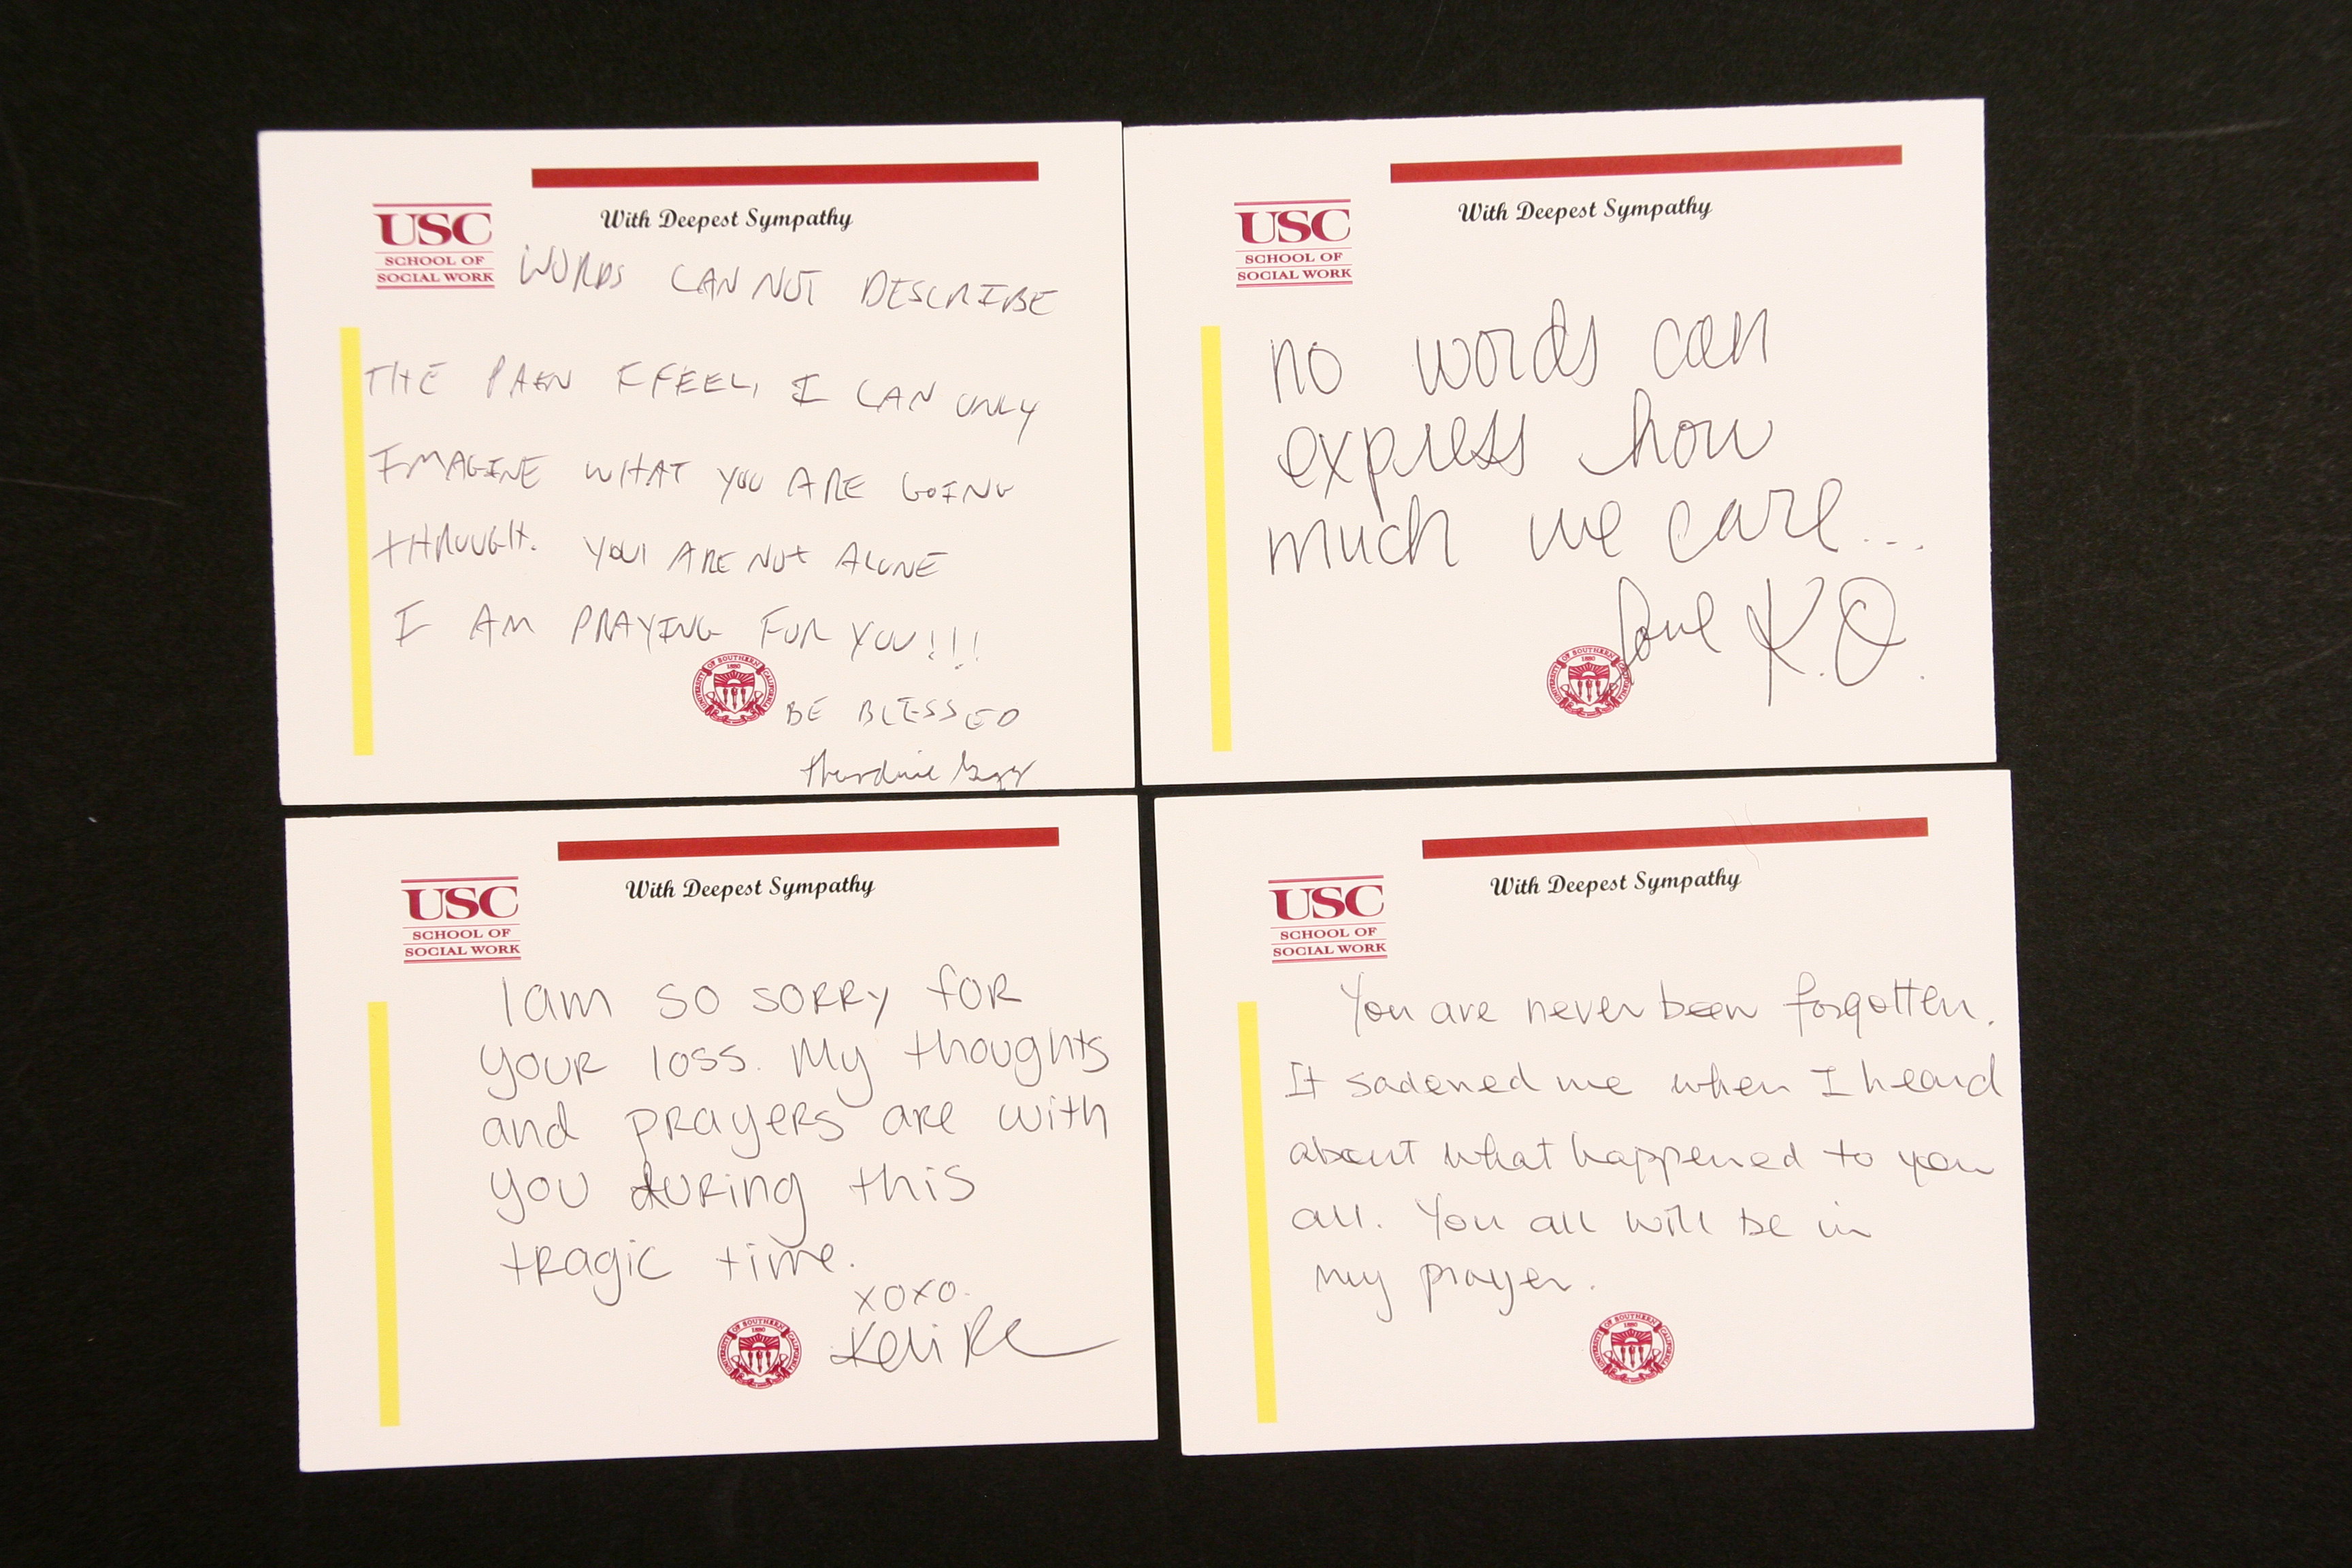 With Deepest Sympathy
USC
SCHOOL OF
SOCIAL WORK
WORDS CAN NOT DESCRIBE
THE PAIN I FEEL, I CAN ONLY
IMAGINE WHAT YOU ARE GOING
THROUGH. YOU ARE NOT ALONE
I AM PRAYING FOR YOU!!!
UNIVERSITY OF SOUTHERN CALIFORNIA
1880
BE BLESSED
With Deepest Sympathy
USC
SCHOOL OF
SOCIAL WORK
no words can
express how
much we care...
Love K.O.
UNIVERSITY OF SOUTHERN CALIFORNIA
1880
With Deepest Sympathy
USC
SCHOOL OF
SOCIAL WORK
I am so sorry for
your loss. My thoughts
and prayers are with
you during this
tragic time.
xoxo.
UNIVERSITY OF SOUTHERN CALIFORNIA
1880
With Deepest Sympathy
USC
SCHOOL OF
SOCIAL WORK
You are never been forgotten.
It sadened me when I heard
about what happened to you
all. You all will be in
my prayer.
UNIVERSITY OF SOUTHERN CALIFORNIA
1880